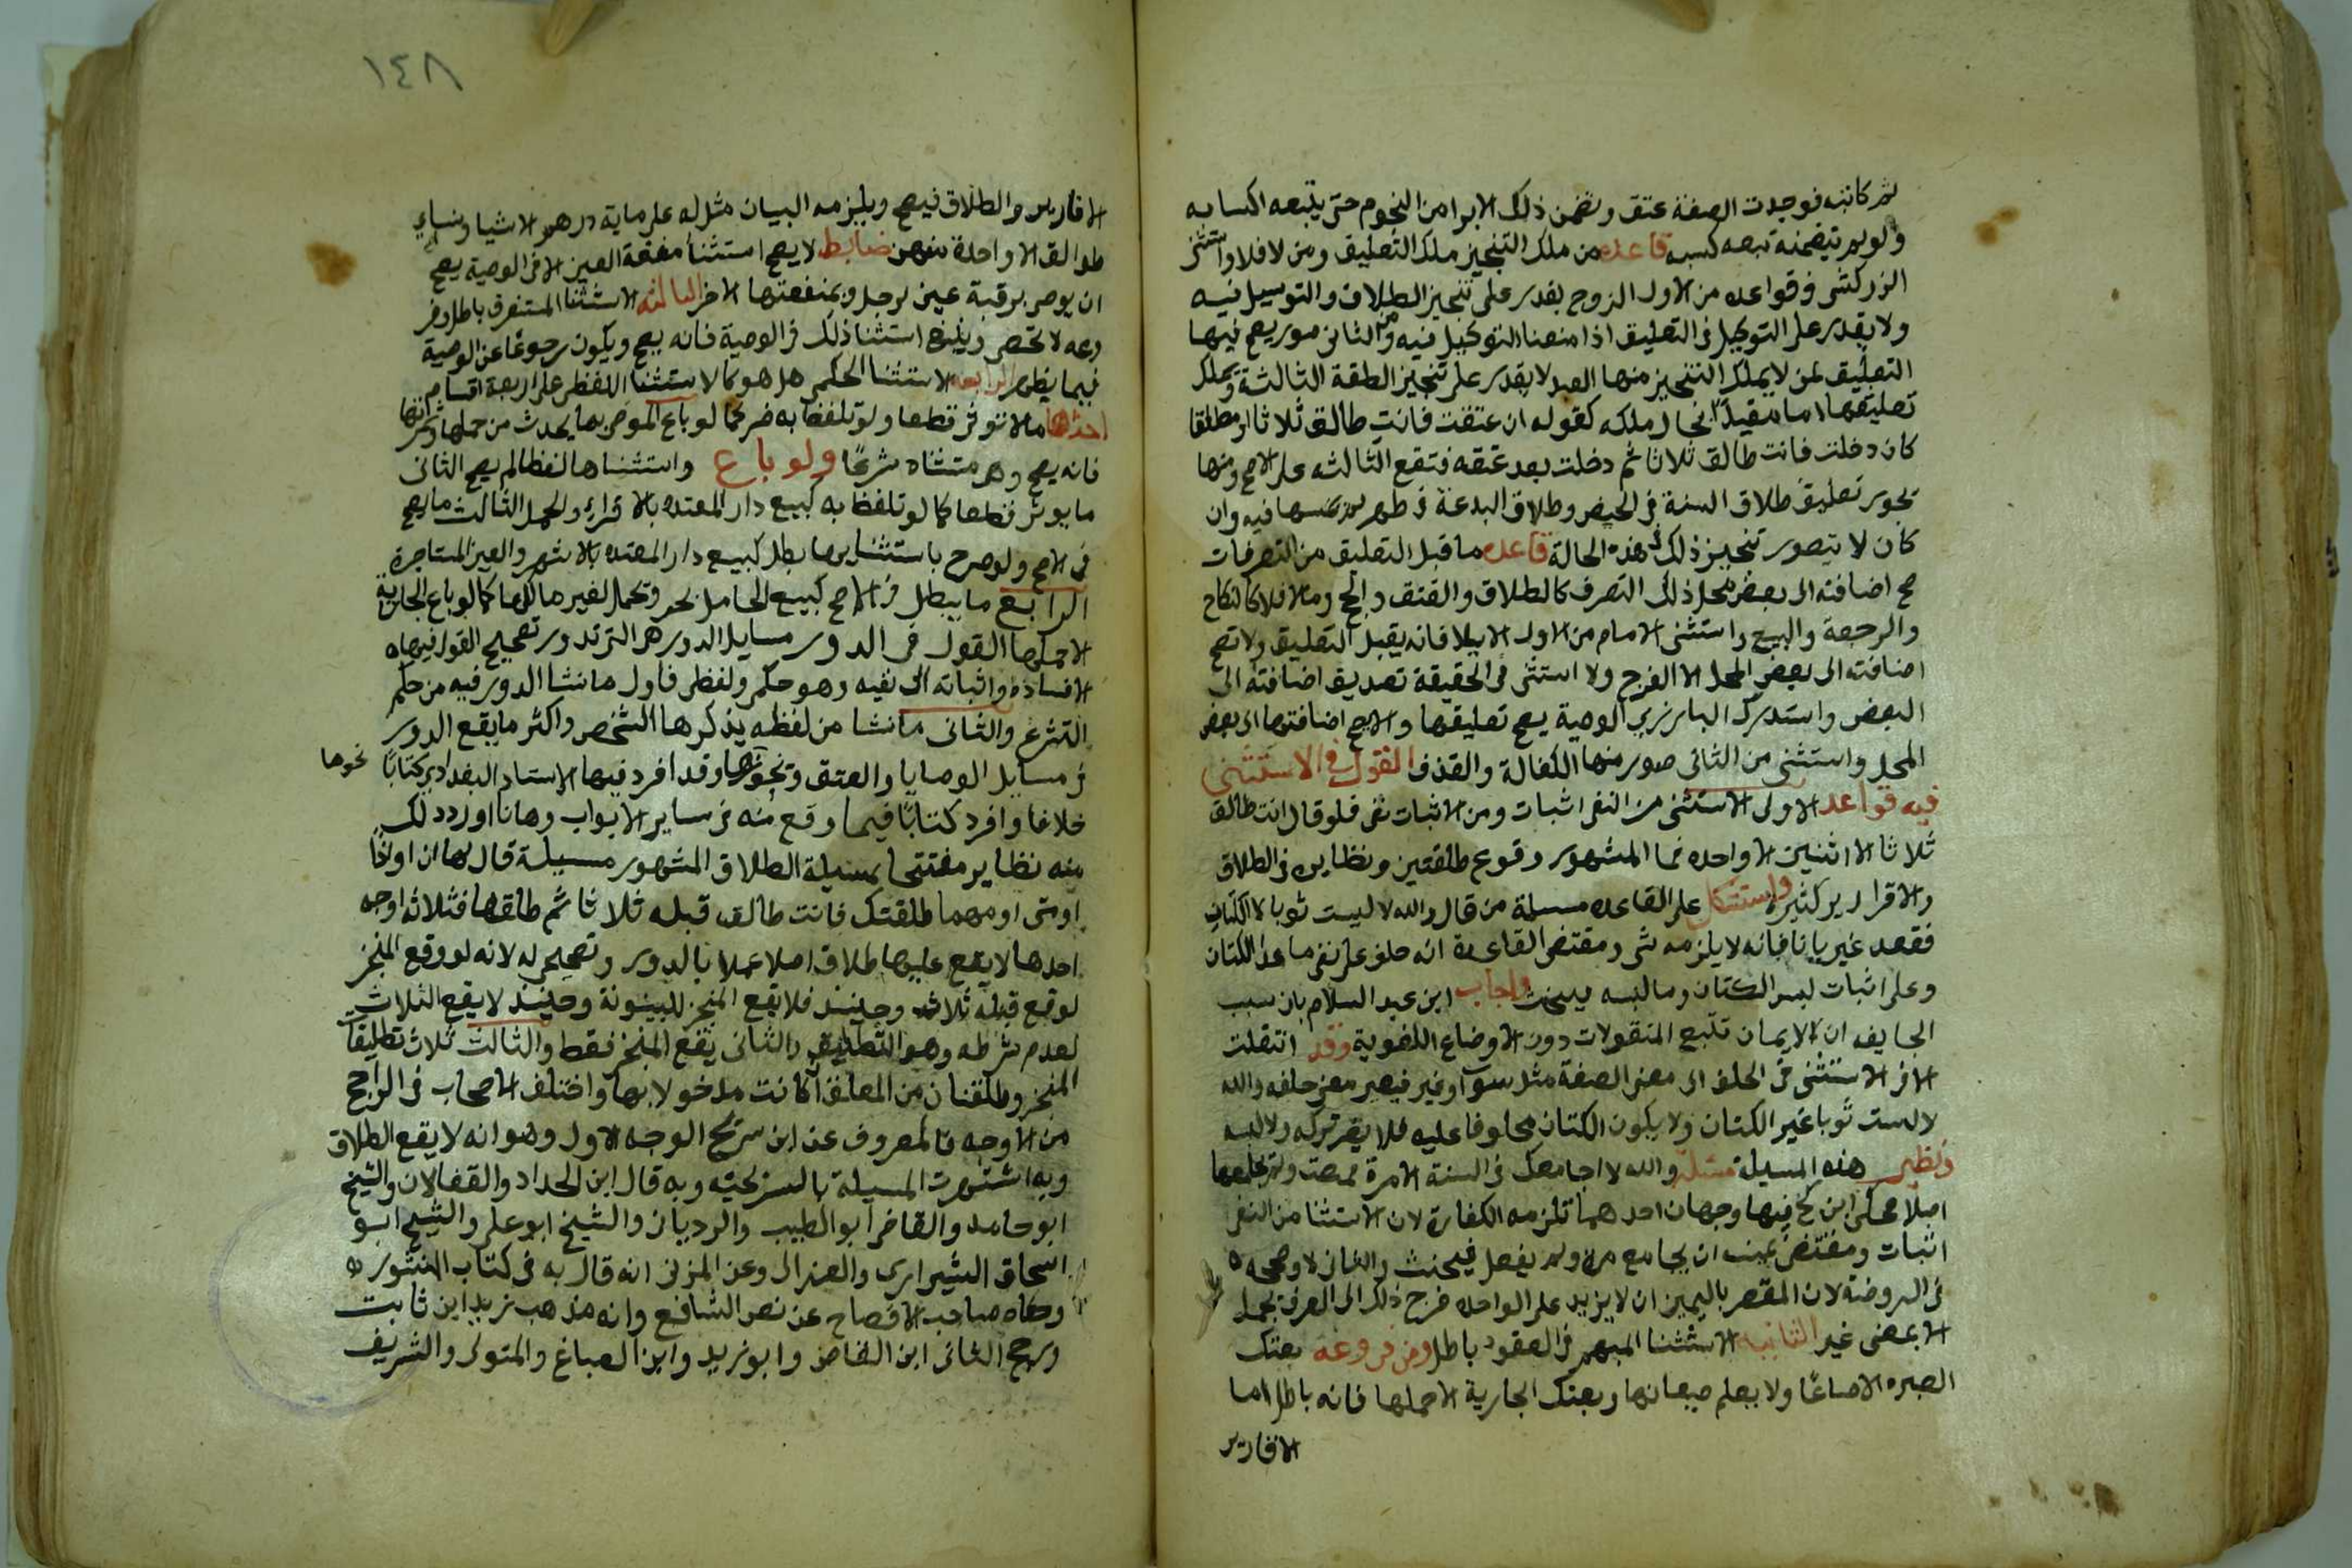 ثم كاتبه فوجدت الصفة عتق وتضمن ذلك الابرا من النجوم حتى يتبعه اكسابه
ولو لم يتضمنه تبعه كسبه قاعده من ملك التنجيز ملك التعليق ومن لا فلا واستثنى
الزركشى فى قواعده من الاول الزوج يقدر على تنجيز الطلاق والتوكيل فيه
ولا يقدر على التوكيل فى التعليق اذا منعنا التوكيل فيه ومن الثانى صور يصح فيها
التعليق لمن لا يملك التنجيز منها العبد لا يقدر على تنجيز الطلقة الثالثة ويملك
تعليقها اما مقيدا بحال ملكه كقوله ان عتقت فانت طالق ثلاثا او مطلقا
كان دخلت فانت طالق ثلاثا ثم دخلت بعد عتقه فتقع الثالثه على الاصح ومنها
يجوز تعليق طلاق السنة فى الحيض وطلاق البدعة فى طهر لم يمسها فيه وان
كان لا يتصور تنجيز ذلك فى هذه الحالة قاعده ما قبل التعليق من التصرفات
صح اضافته الى بعض محل ذلك التصرف كالطلاق والعتق والحج وما لا فلا كالنكاح
والرجعة والبيع واستثنى الامام من الاول الايلا فانه يقبل التعليق ولا تصح
اضافته الى بعض المحل الا الفرج ولا استثنى فى الحقيقة تصديق اضافته الى
البعض واستدرك البارزى الوصية يصح تعليقها ولا يصح اضافتها الى بعض
المحل واستثنى من الثانى صور منها الكفالة والقذف القول فى الاستثنى
فيه قواعد الاولى الاستثنى من النفى اثبات ومن الاثبات نفى فلو قال انت طالق
ثلاثا الا اثنين الا واحده فما المشهور وقوع طلقتين ونظايره فى الطلاق
والاقرارير كثيرة واستشكل على القاعده مسلة من قال والله لا لبست ثوبا الا الكتان
فقعد عريانا فانه لا يلزمه شى ومقتضى القاعدة انه حلف على نفى ما عدا الكتان
وعلى اثبات لبس الكتان وما لبسه فيحنث واجاب ابن عبد السلام بان سبب
ان الايمان تتبع المنقولات دون الاوضاع اللغوية وقد انتقلت
الا فى الاستثنى فى الحلف الى معنى الصفة مثل سوى وغير فيصير معنى حلفه والله
لا لبست ثوبا غير الكتان ولا يكون الكتان محلوفا عليه فلا يضر تركه ولا لبسه
ونظير هذه المسيلة مسلة والله لا اجامعك فى السنة الا مرة فمضت ولم يجامعها
اصلا فحكى ابن كج فيها وجهان احدهما تلزمه الكفارة لان الاستثنا من النفى
اثبات ومقتضى يمينه ان يجامع مرة ولم يفعل فيحنث والثانى لا وصححه
فى الروضة لان المقصر باليمين ان لا يزيد على الواحده فرجع ذلك الى العرف بجعل
الا بمعنى غير الثانية الاستثنا المبهم فى العقود باطل ومن فروعه بعتك
الصبره الا صاعا ولا يعلم صيعانها وبعتك الجارية الا حملها فانه باطل اما
الاقارير
١٤٨
الاقارير والطلاق فيصح ويلزمه البيان مثل له على ماية درهم الا شيا ونساى
طوالق الا واحدة منهن ضابط لا يصح استثنا منفعة العين الا فى الوصية يصح
ان يوصى برقبة عين لرجل وبمنفعتها لاخر الثالثه الاستثنا المستغرق باطل وفر
وعه لا تحصى وينبغى استثنا ذلك فى الوصية فانه يصح ويكون رجوعا عن الوصية
فيما يظهر الرابعه الاستثنا الحكمى هل هو كالاستثنا اللفظى على اربعة اقسام
احدها ما لا تؤثر قطعا ولو تلفظ به ضر كما لو باع الموصى بما يحدث من حملها وثمرتها
فانه يصح وهو مستثناه شرعا ولو باع واستثناها لفظا لم يصح الثانى
ما يوثر قطعا كما لو تلفظ به كبيع دار المعتده بالاقراء والحمل الثالث ما يصح
فى الاصح ولو صرح باستثنايها بطل كبيع دار المعتده بالاشهر والعين المستاجرة
الرابع ما يبطل فى الاصح كبيع الحامل بحر وبحمل لغير مالكها كما لو باع الجارية
الا حملها القول فى الدور مسايل الدور هى التى تدور تصحيح القول فيها
الافساده واثباته الى نفيه وهو حكمى ولفظى فاول ما نشا الدور فيه من حكم
الشرع والثانى ما نشا من لفظه يذكرها الشخص واكثر ما يقع الدور
فى مسايل الوصايا والعتق ونحوها وقد افرد فيها الاستاد البغدادى كتابا نحوها
خلافا وافرد كتابا فيما وقع منه فى ساير الابواب وها انا اورد ذلك
منه نظاير مفتتحا بمسيلة الطلاق المشهور مسيلة قال لها ان او اذا
او متى او مهما طلقتك فانت طالق قبله ثلاثا ثم طلقها فثلاثه اوجه
احدها لا يقع عليها طلاق اصلا عملا بالدور وتصحيح له لانه لو وقع المنجز
لوقع قبله ثلاث وحينيذ فلا يقع المنجز للبينونة وحينيذ لا يقع الثلاث
لعدم شرطه وهو التطليق والثانى يقع المنجز فقط والثالث ثلاث تطليقات
المنجز وطلقتان من المعلق ان كانت مدخولا بها واختلف الاصحاب فى الراجح
من الاوجه فالمعروف عن ابن سريج الوجه الاول وهو انه لا يقع الطلاق
وبه اشتهرت المسيلة بالسريجيه وبه قال ابن الحداد والقفالان والشيخ
ابو حامد والقاضى ابو الطيب والرويانى والشيخ ابو على والشيخ ابو
اسحاق الشيرازى والغزالى وعن المزنى انه قال به فى كتاب المنثور
وحكاه صاحب الافصاح عن نص الشافعى وانه مذهب زيد ابن ثابت
ورجح الثانى ابن القاص وابو زيد وابن الصباغ والمتولى والشريف